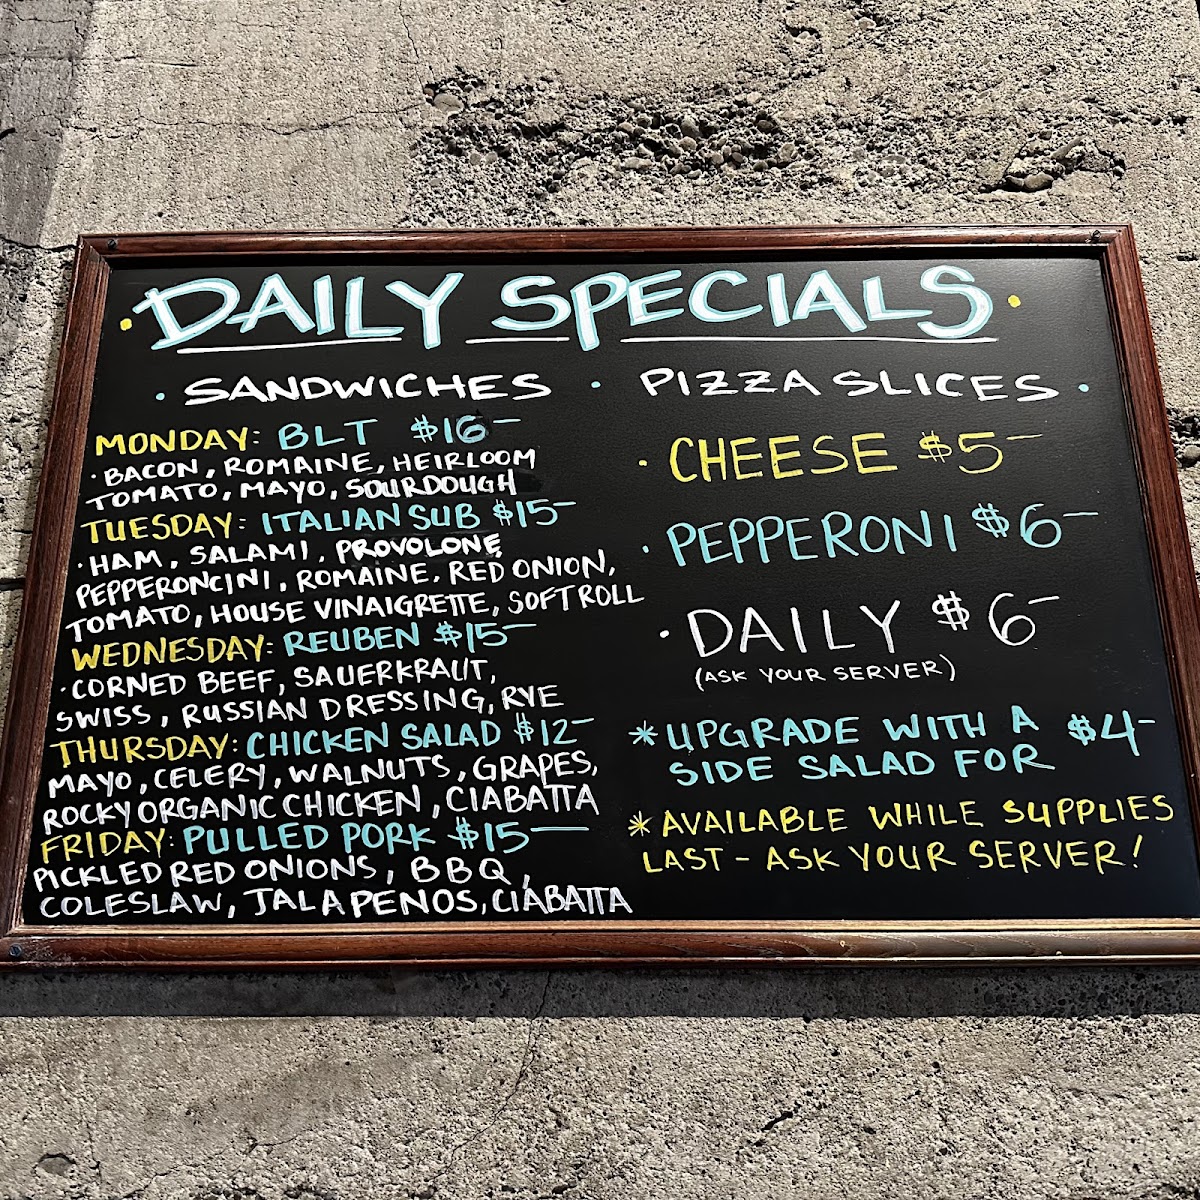 DAILY SPECIALS
· SANDWICHES ·
MONDAY: BLT $16-
· BACON, ROMAINE, HEIRLOOM
TOMATO, MAYO, SOURDOUGH
TUESDAY: ITALIAN SUB $15-
· HAM, SALAMI, PROVOLONE,
PEPPERONCINI, ROMAINE, RED ONION,
TOMATO, HOUSE VINAIGRETTE, SOFT ROLL
WEDNESDAY: REUBEN $15-
· CORNED BEEF, SAUERKRAUT,
SWISS, RUSSIAN DRESSING, RYE
THURSDAY: CHICKEN SALAD $12-
MAYO, CELERY, WALNUTS, GRAPES,
ROCKY ORGANIC CHICKEN, CIABATTA
FRIDAY: PULLED PORK $15-
PICKLED RED ONIONS, BBQ,
COLESLAW, JALAPENOS, CIABATTA
PIZZA SLICES ·
· CHEESE $5-
· PEPPERONI $6-
· DAILY $6-
(ASK YOUR SERVER)
* UPGRADE WITH A $4-
SIDE SALAD FOR
* AVAILABLE WHILE SUPPLIES
LAST - ASK YOUR SERVER!